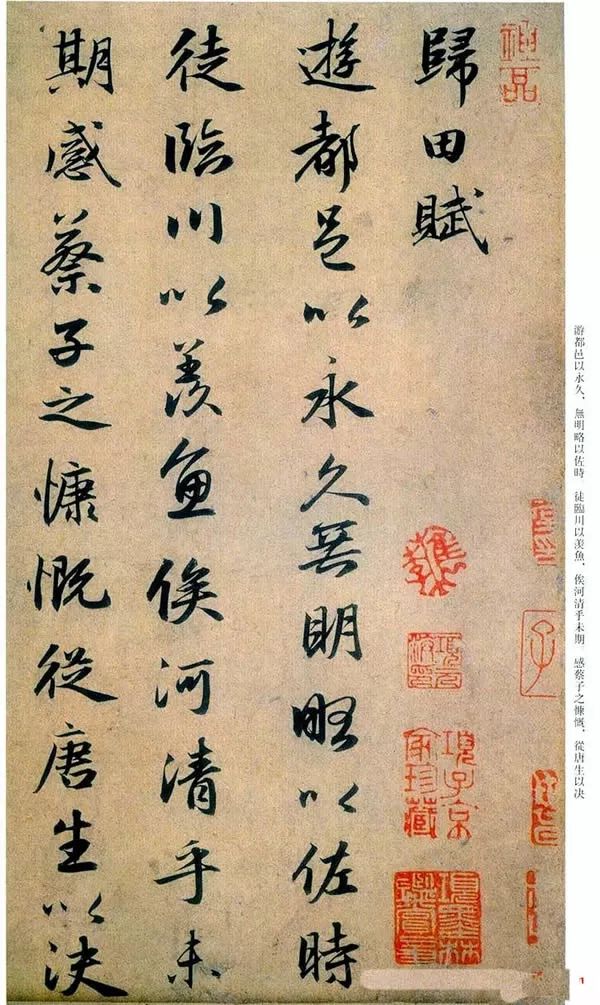 歸田賦
遊都邑以永久無明略以佐時
徒臨川以羨魚俟河清乎未
期感蔡子之慷慨從唐生以決
神品
項子京家珍藏
項墨林鑑賞章
子
游都邑以永久、無明略以佐時 徒臨川以羨魚、俟河清乎未期 感蔡子之慷慨、從唐生以決
1